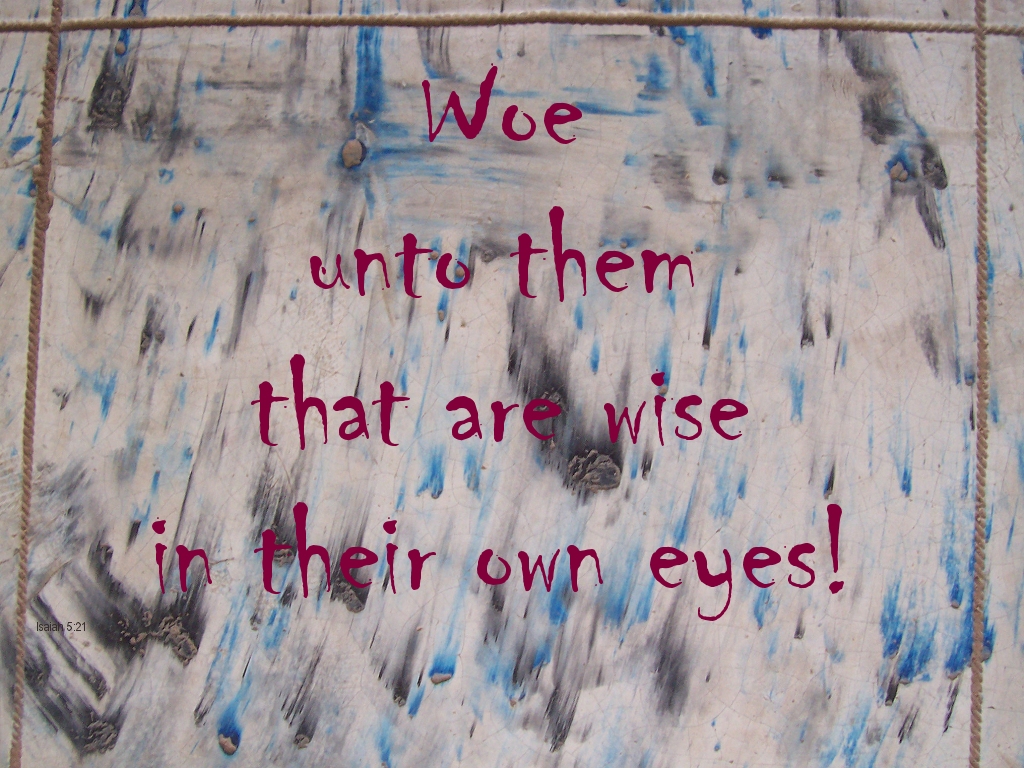 Woe
unto them
that are wise
in their own eyes!
Isaiah 5:21